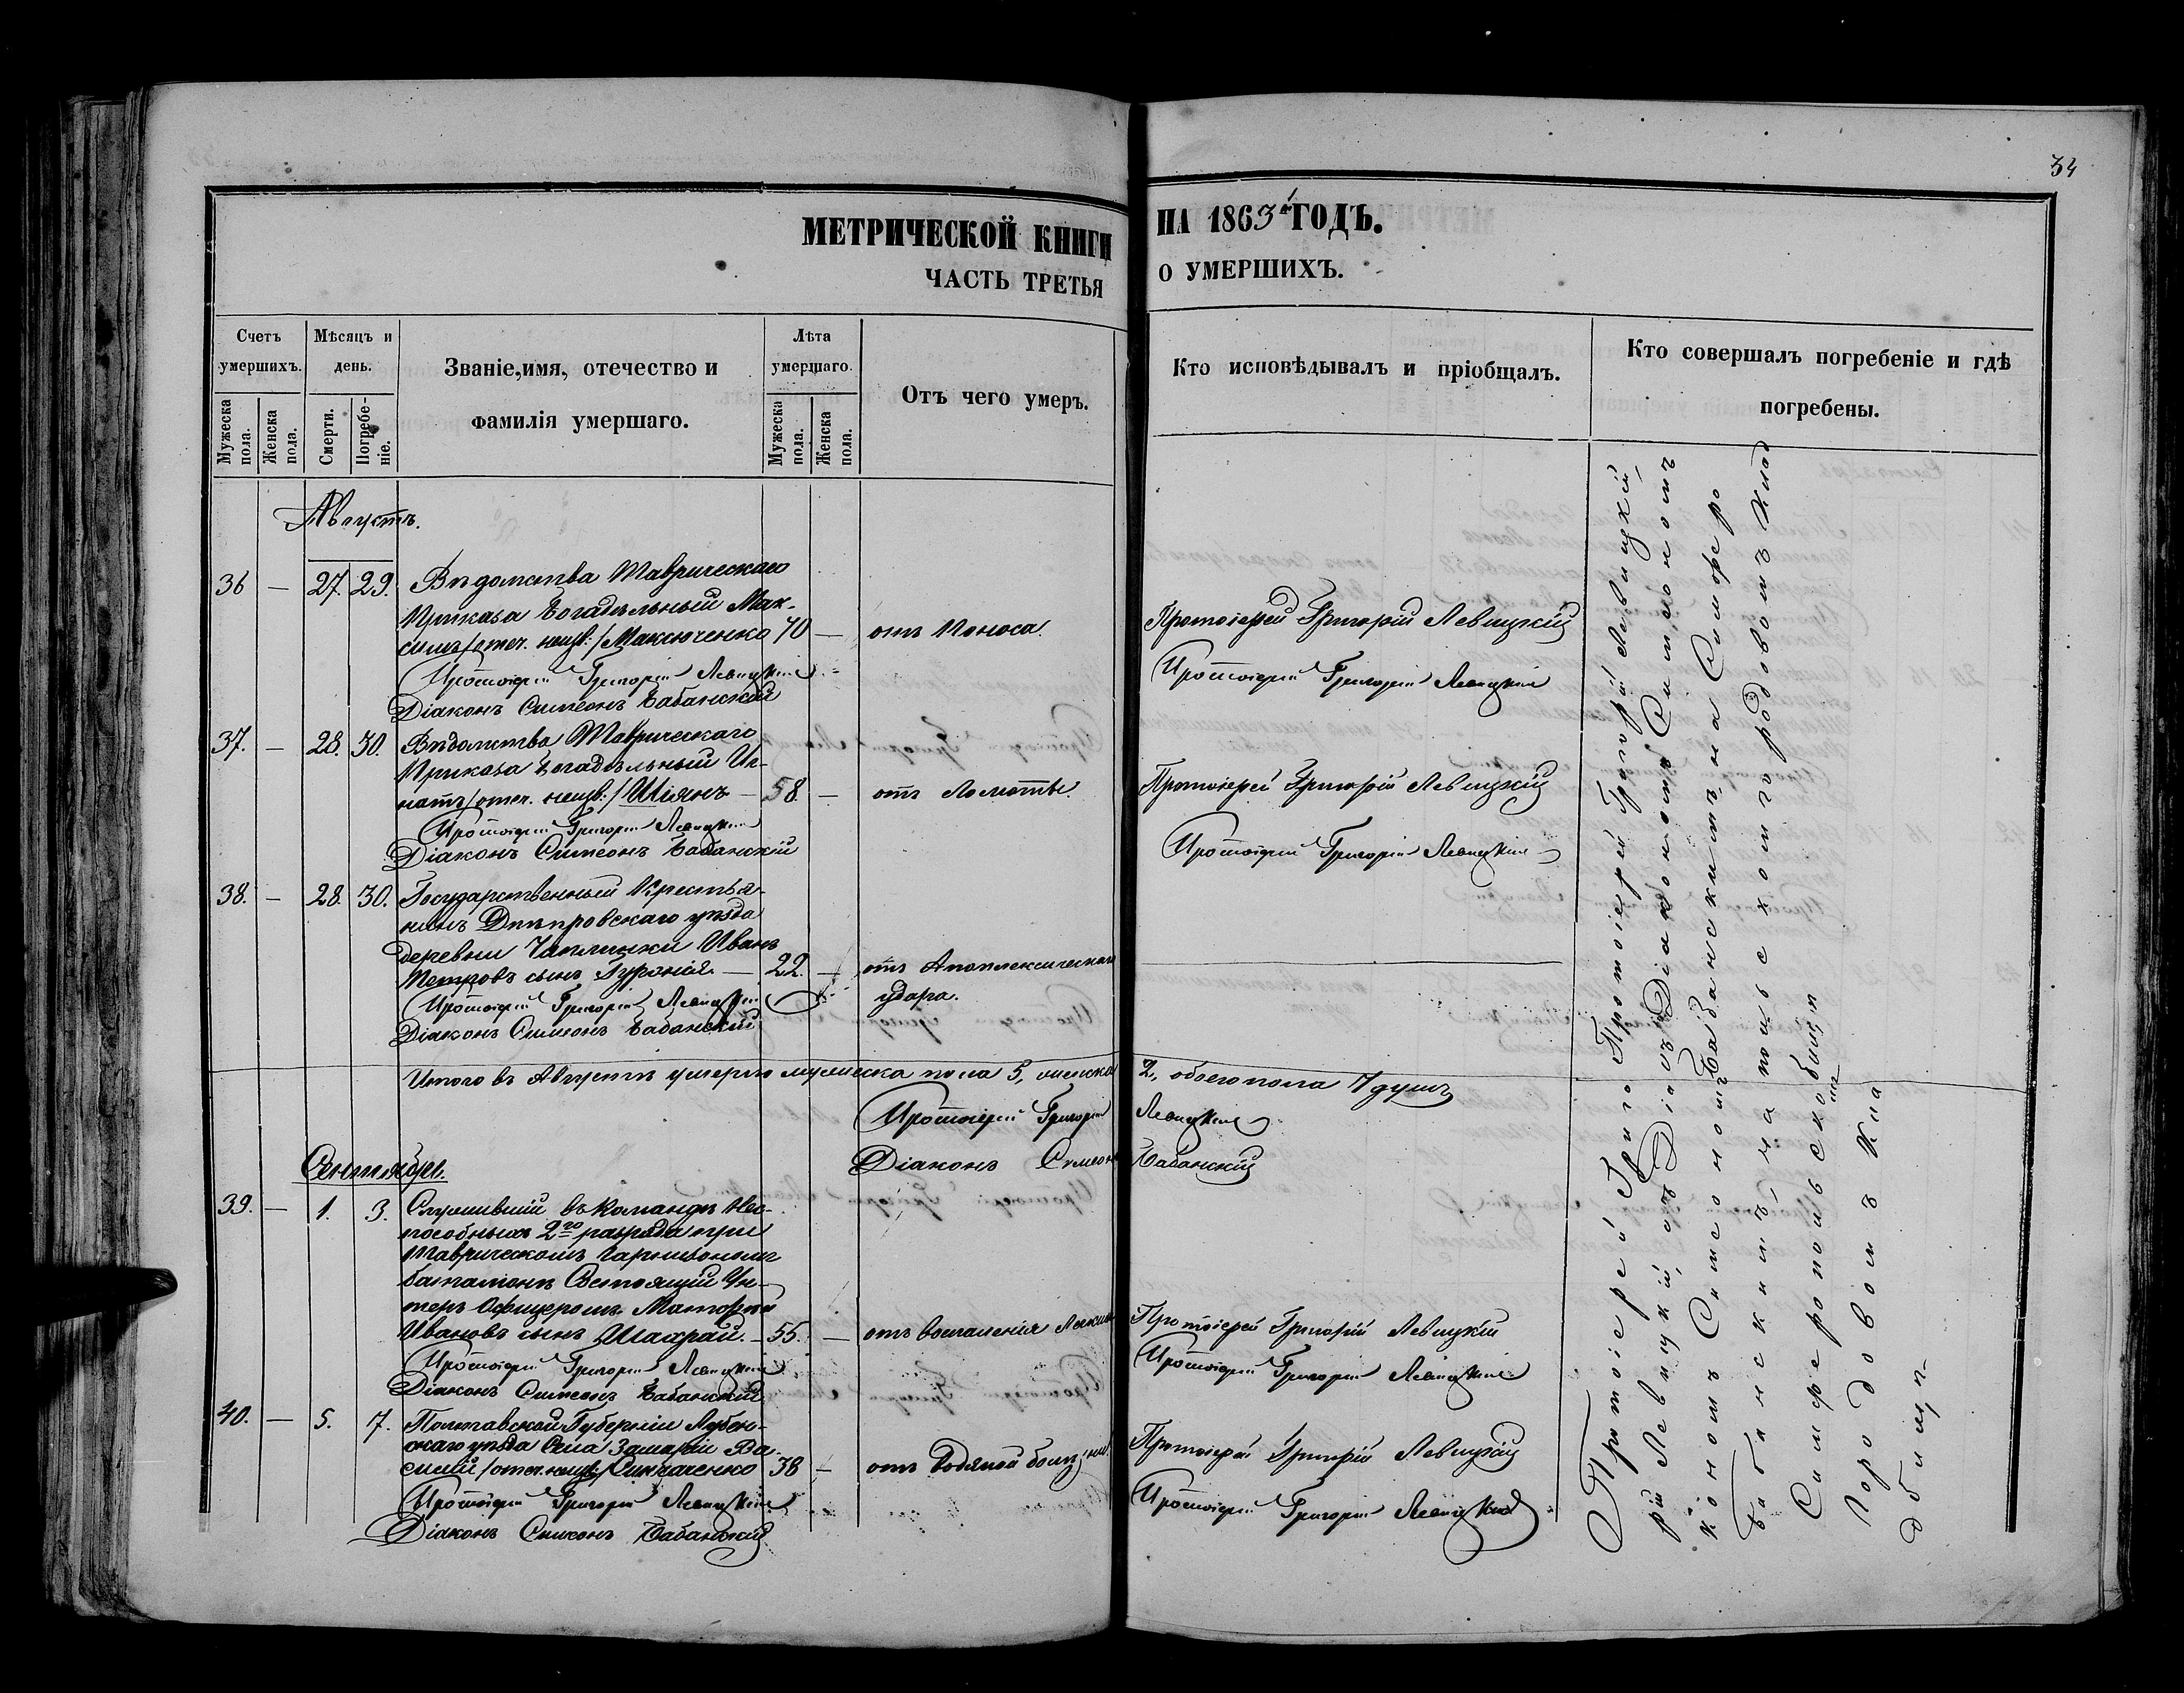 34
МЕТРИЧЕСКОЙ КНИГИ НА 1863й ГОДЪ.
ЧАСТЬ ТРЕТЬЯ О УМЕРШИХЪ.
Счетъ умершихъ.
Мужеска пола.
Женска пола.
Мѣсяцъ и день.
Смерти.
Погребе-
ніе.
Званіе,имя, отечество и
фамилія умершаго.
Лѣта умершаго.
Мужеска пола.
Женска пола.
Отъ чего умеръ.
Кто исповѣдывалъ и пріобщалъ.
Кто совершалъ погребеніе и гдѣ
погребены.
Августъ.
36 — 27. 29. Вѣдомства Таврическаго
Приказа Богадѣльный Мак-
симъ /отеч. неизв:/ Максюченко 70 — отъ Поноса. Протоіерей Григорій Левицкій
Протоіерей Григорій Левицкій Протоіерей Григорій Левицкій
Діаконъ Симеонъ Бабанскій
37. — 28. 30. Вѣдомства Таврическаго
Приказа Богадѣльный Иг-
натъ /отеч. неизв:/ Шіянъ — 58. — отъ Ломоты. Протоіерей Григорій Левицкій
Протоіерей Григорій Левицкій Протоіерей Григорій Левицкій
Діаконъ Симеонъ Бабанскій
38. — 28. 30. Государственный Крестья-
нинъ Днѣпровскаго уѣзда
деревни Чаплинки Иванъ
Петровъ сынъ — 22. — отъ Апоплексическаго
Протоіерей Григорій Левицкій удара.
Діаконъ Симеонъ Бабанскій
Итого въ Августѣ умерло мужеска пола 5, женска 2, обоего пола 7 душъ
Протоіерей Григорій Левицкій
Діаконъ Симеонъ Бабанскій
Сентябрь.
39. — 1. 3. Служившій въ Командѣ Нес-
пособныхъ 2го разряда при
Таврическомъ Гарнизономъ
баталіонѣ Состоящій Ун-
теръ Офицеромъ Матфей
Ивановъ сынъ Шахрай. — 55. — отъ воспаленія Легкихъ Протоіерей Григорій Левицкій
Протоіерей Григорій Левицкій Протоіерей Григорій Левицкій
Діаконъ Симеонъ Бабанскій
40. — 5. 7. Полтавской Губерніи Лубен-
скаго уѣзда Села Ва-
силій /отеч. неизв:/ 38 — отъ Водяной болѣзни Протоіерей Григорій Левицкій
Протоіерей Григорій Левицкій Протоіерей Григорій Левицкій
Діаконъ Симеонъ Бабанскій
Протоіерей Григо
рій Левицкій съ Діа
кономъ Симеономъ
Бабанскимъ на
Симферопольско
Городовомъ Кла
дбищѣ
Протоіерей Григорій Левицкій
съ Діакономъ Симеономъ
Бабанскимъ на Симферо
польскомъ городовомъ Клад
бищѣ